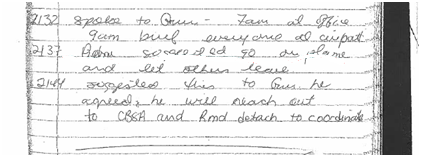 2132 spoke to Gun - 7am at office
9am brief everyone at airport
2137 Adm so arrested go on plane
and let others leave
2144 suggested this to Gun he
agreed, he will reach out
to CBSA and Rmd detach to coordinate